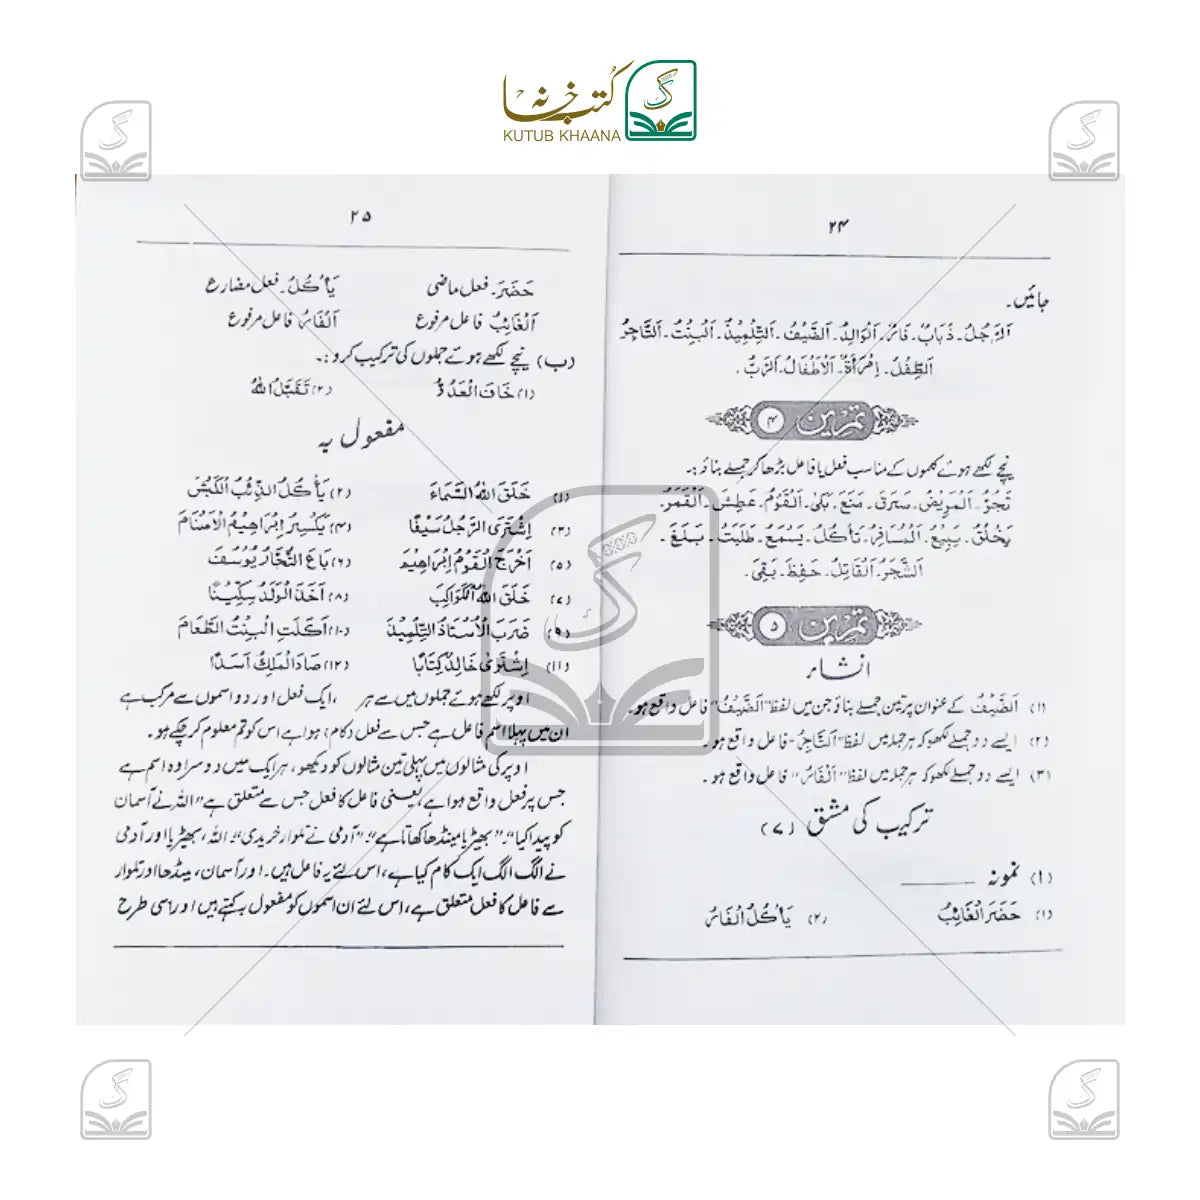 کتب خانہ
KUTUB KHAANA
۲۴
جائیں۔
اَلرَّجُلُ۔ ذُبَابٌ۔ فَائِزٌ۔ اَلْوَالِدُ۔ اَلضَّيْفُ۔ اَلتِّلْمِيْذُ۔ اَلْبِنْتُ۔ اَلتَّاجِرُ
اَلطِّفْلُ۔ اِمْرَأَةٌ۔ اَلْاَطْفَالُ۔ اَلرَّبُّ۔
تمرین ۴
نیچے لکھے ہوئے کلموں کے مناسب فعل یا فاعل بڑھا کر جملے بناؤ:۔
اَلْمَرِيْضُ۔ سَرَقَ۔ مَنَعَ۔ بَكٰى۔ اَلْقَوْمُ۔ عَطِشَ۔ اَلْقَمَرُ۔
يَخْلُقُ۔ يَبِيْعُ۔ اَلْمُسَافِرُ۔ تَأْكُلُ۔ يَسْمَعُ۔ طَلَبَتْ۔ بَلَغَ۔
اَلشَّجَرُ۔ اَلْقَاتِلُ۔ حَفِظَ۔ بَقِىَ۔
تمرین ۵
انشاء
(۱) اَلضَّيْفُ کے عنوان پر تین جملے بناؤ جن میں لفظ "اَلضَّيْفُ" فاعل واقع ہو۔
(۲) ایسے دو جملے لکھو کہ ہر جملہ میں لفظ "اَلتَّاجِرُ" فاعل واقع ہو۔
(۳) ایسے دو جملے لکھو کہ ہر جملہ میں لفظ "اَلْفَأْسُ" فاعل واقع ہو۔
ترکیب کی مشق (۷)
(۱) نمونہ ـــــــ
(۱) حَضَرَ الْغَائِبُ (۲) يَأْكُلُ الْفَأْرُ
۲۵
حَضَرَ۔ فعل ماضی يَأْكُلُ۔ فعل مضارع
اَلْغَائِبُ فاعل مرفوع اَلْفَأْرُ فاعل مرفوع
(ب) نیچے لکھے ہوئے جملوں کی ترکیب کرو:۔
(۱) خَافَ الْعَدُوُّ (۲) تَقَبَّلَ اللهُ
مفعول بہ
(۱) خَلَقَ اللهُ السَّمَاءَ (۲) يَأْكُلُ الذِّئْبُ الْكَبْشَ
(۳) اِشْتَرَى الرَّجُلُ سَيْفًا (۴) يَكْسِرُ اِبْرَاهِيْمُ الْاَصْنَامَ
(۵) اَخْرَجَ الْقَوْمُ اِبْرَاهِيْمَ (۶) بَاعَ التُّجَّارُ يُوْسُفَ
(۷) خَلَقَ اللهُ الْكَوَاكِبَ (۸) اَخَذَ الْوَلَدُ سِكِّيْنًا
(۹) ضَرَبَ الْاُسْتَاذُ التِّلْمِيْذَ (۱۰) اَكَلَتِ الْبِنْتُ الطَّعَامَ
(۱۱) اِشْتَرٰى خَالِدٌ كِتَابًا (۱۲) صَادَ الْمَلِكُ اَسَدًا
اوپر لکھے ہوئے جملوں میں سے ہر ، ایک فعل اور دو اسموں سے مرکب ہے
ان میں پہلا اسم فاعل ہے جس سے فعل (کام) ہوا ہے اس کو تم معلوم کر چکے ہو۔
اوپر کی مثالوں میں پہلی تین مثالوں کو دیکھو، ہر ایک میں دوسرا وہ اسم ہے
جس پر فعل واقع ہوا ہے، یعنی فاعل کا فعل جس سے متعلق ہے "اللہ نے آسمان
کو پیدا کیا"۔ "بھیڑیا مینڈھا کھاتا ہے"۔ "آدمی نے تلوار خریدی"۔ اللہ، بھیڑیا اور آدمی
نے الگ الگ ایک کام کیا ہے، اس لئے یہ فاعل ہیں۔ اور آسمان، مینڈھا اور تلوار
سے فاعل کا فعل متعلق ہے، اس لئے ان اسموں کو مفعول بہ کہتے ہیں اور اسی طرح